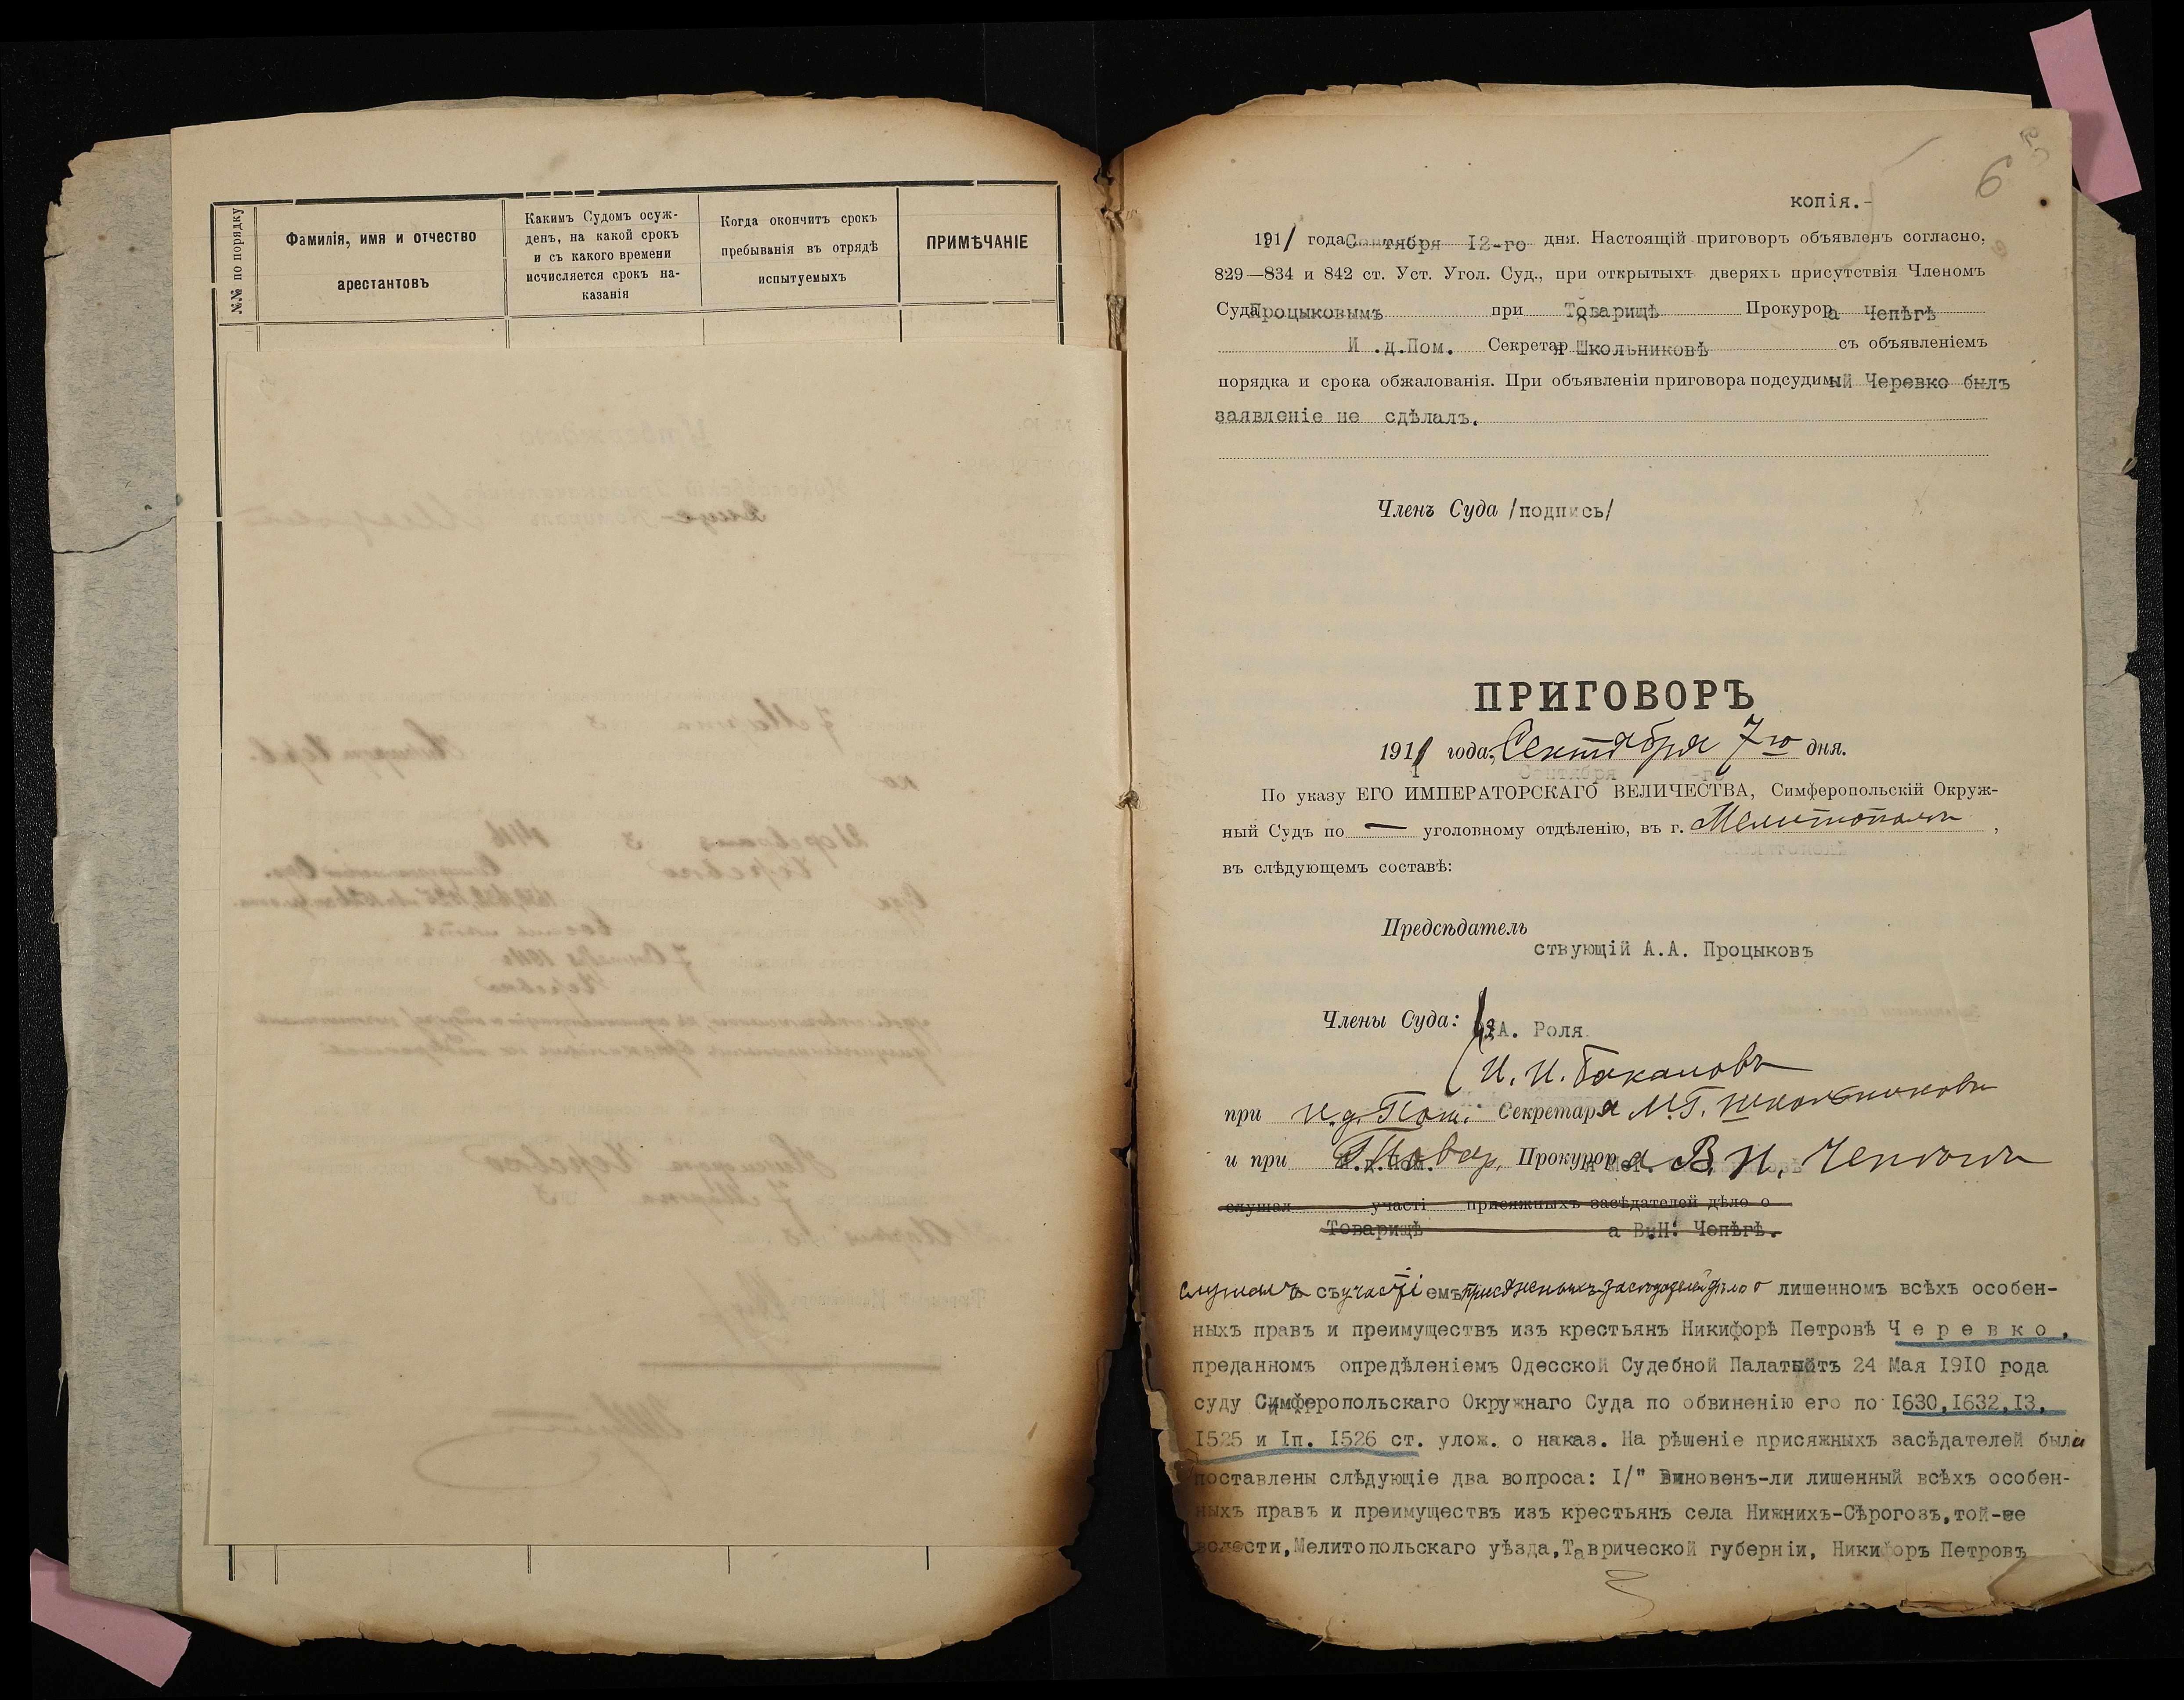 №№ по порядку
Фамилія, имя и отчество
арестантовъ
Какимъ Судомъ осуж-
денъ, на какой срокъ
и съ какого времени
исчисляется срокъ на-
казанія
Когда окончитъ срокъ
пребыванія въ отрядѣ
испытуемыхъ
ПРИМѢЧАНІЕ
6
5
копія.-
1911 года Сентября 12-го дня. Настоящій приговоръ объявленъ согласно,
829—834 и 842 ст. Уст. Угол. Суд., при открытыхъ дверяхъ присутствія Членомъ
Суда Процыковымъ при Товарищѣ Прокурора Чепѣгѣ
И .д.Пом. Секретаря Школьниковѣ съ объявленіемъ
порядка и срока обжалованія. При объявленіи приговора подсудимый Черевко былъ
заявленіе не сдѣлалъ.
Членъ Суда /подпись/
ПРИГОВОРЪ
1911 года, Сентября 7го дня.
Сентября 7-го
По указу ЕГО ИМПЕРАТОРСКАГО ВЕЛИЧЕСТВА, Симферопольскій Окруж-
ный Судъ по — уголовному отдѣленію, въ г. Мелитополѣ ,
въ слѣдующемъ составѣ:
Предсѣдатель
ствующій А.А. Процыковъ
Члены Суда: А. Роля
И. И. Бакановъ
при И.д. Пом. Секретаря М.Г. Школьниковѣ
и при Товар. Прокурора В. Н. Чепѣгѣ
слушал участі присяжныхъ засѣдателей дѣло о
Товарищѣ а В.Н. Чепѣгѣ.
Слушалъ съ участіемъ присяжныхъ засѣдателей дѣло о лишенномъ всѣхъ особен-
ныхъ правъ и преимуществъ изъ крестьянъ Никифорѣ Петровѣ Черевко,
преданномъ опредѣленіемъ Одесской Судебной Палаты отъ 24 Мая 1910 года
суду Симферопольскаго Окружнаго Суда по обвиненію его по 1630,1632,13,
1525 и 1п. 1526 ст. улож. о наказ. На рѣшеніе присяжныхъ засѣдателей были
поставлены слѣдующіе два вопроса: I/" Виновенъ-ли лишенный всѣхъ особен-
ныхъ правъ и преимуществъ изъ крестьянъ села Нижнихъ-Сѣрогозъ, той-же
волости, Мелитопольскаго уѣзда, Таврической губерніи, Никифоръ Петровъ